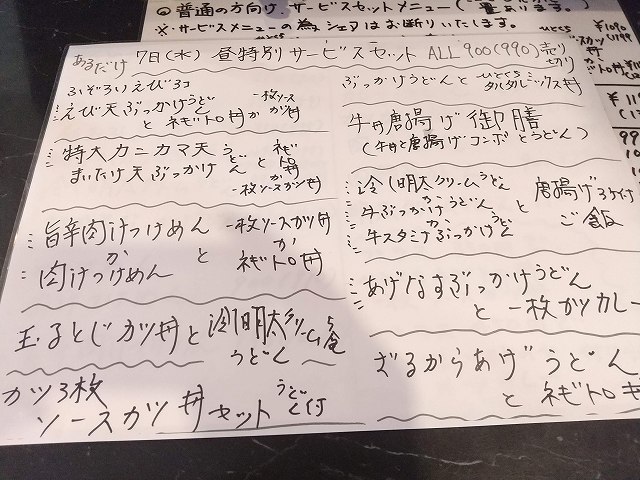 ◎普通の方向け.サービスセットメニュー
※.サービスメニューの為シェアはお断りいたします。
あるだけ 7日(木) 昼特別サービスセット ALL900(990)売り切り
ふぞろいえび3コ
えび天ぶっかけうどん
と ネギトロ丼か 一枚ソースカツ丼
特大カニカマ天 うどん と ネギトロ丼
まいたけ天ぶっかけ か
一枚ソースカツ丼
旨辛肉汁つけめん 一枚ソースカツ丼
か と か
肉汁つけめん ネギトロ丼
玉子とじカツ丼と冷し明太クリームうどん
カツ3枚
ソースカツ丼セット うどん付
ぶっかけうどんと ひとくちタルタルミックス丼
牛丼唐揚げ御膳
(牛丼と唐揚げコンボとうどん)
冷し明太クリームうどん
か
牛ぶっかけうどん と 唐揚げ3ケ付
か ご飯
牛スタミナぶっかけうどん
あげなすぶっかけうどん
と 一枚カツカレー
ざるからあげうどん
と ネギトロ丼